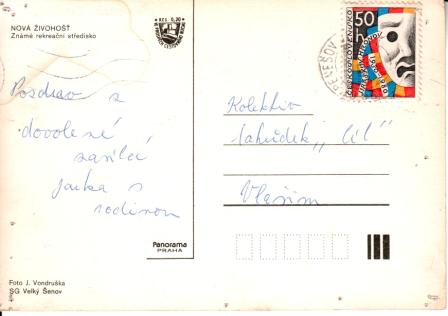 NOVÁ ŽIVOHOŠŤ
Známé rekreační středisko
KČS 0,30
50
h
ČESKOSLOVENSKO
Pozdrav z
dovolené
zasílá
Jarka s
rodinou
Kolektiv
lahůdek „Cíl"
Vlašim
Panorama
PRAHA
Foto J. Vondruška
SG Velký Šenov